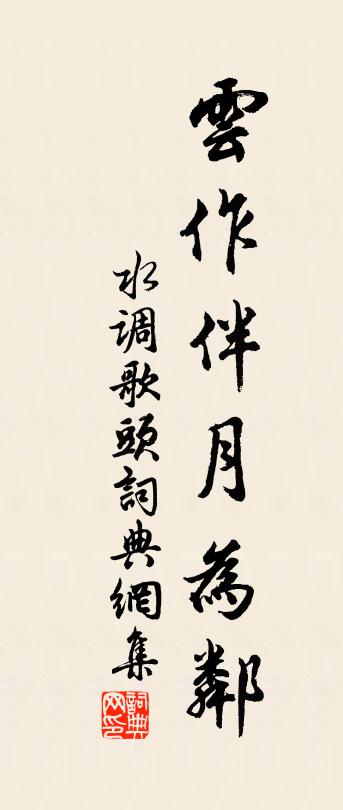 雲作伴月為鄰
水调歌頭詞典網集
詞典网印